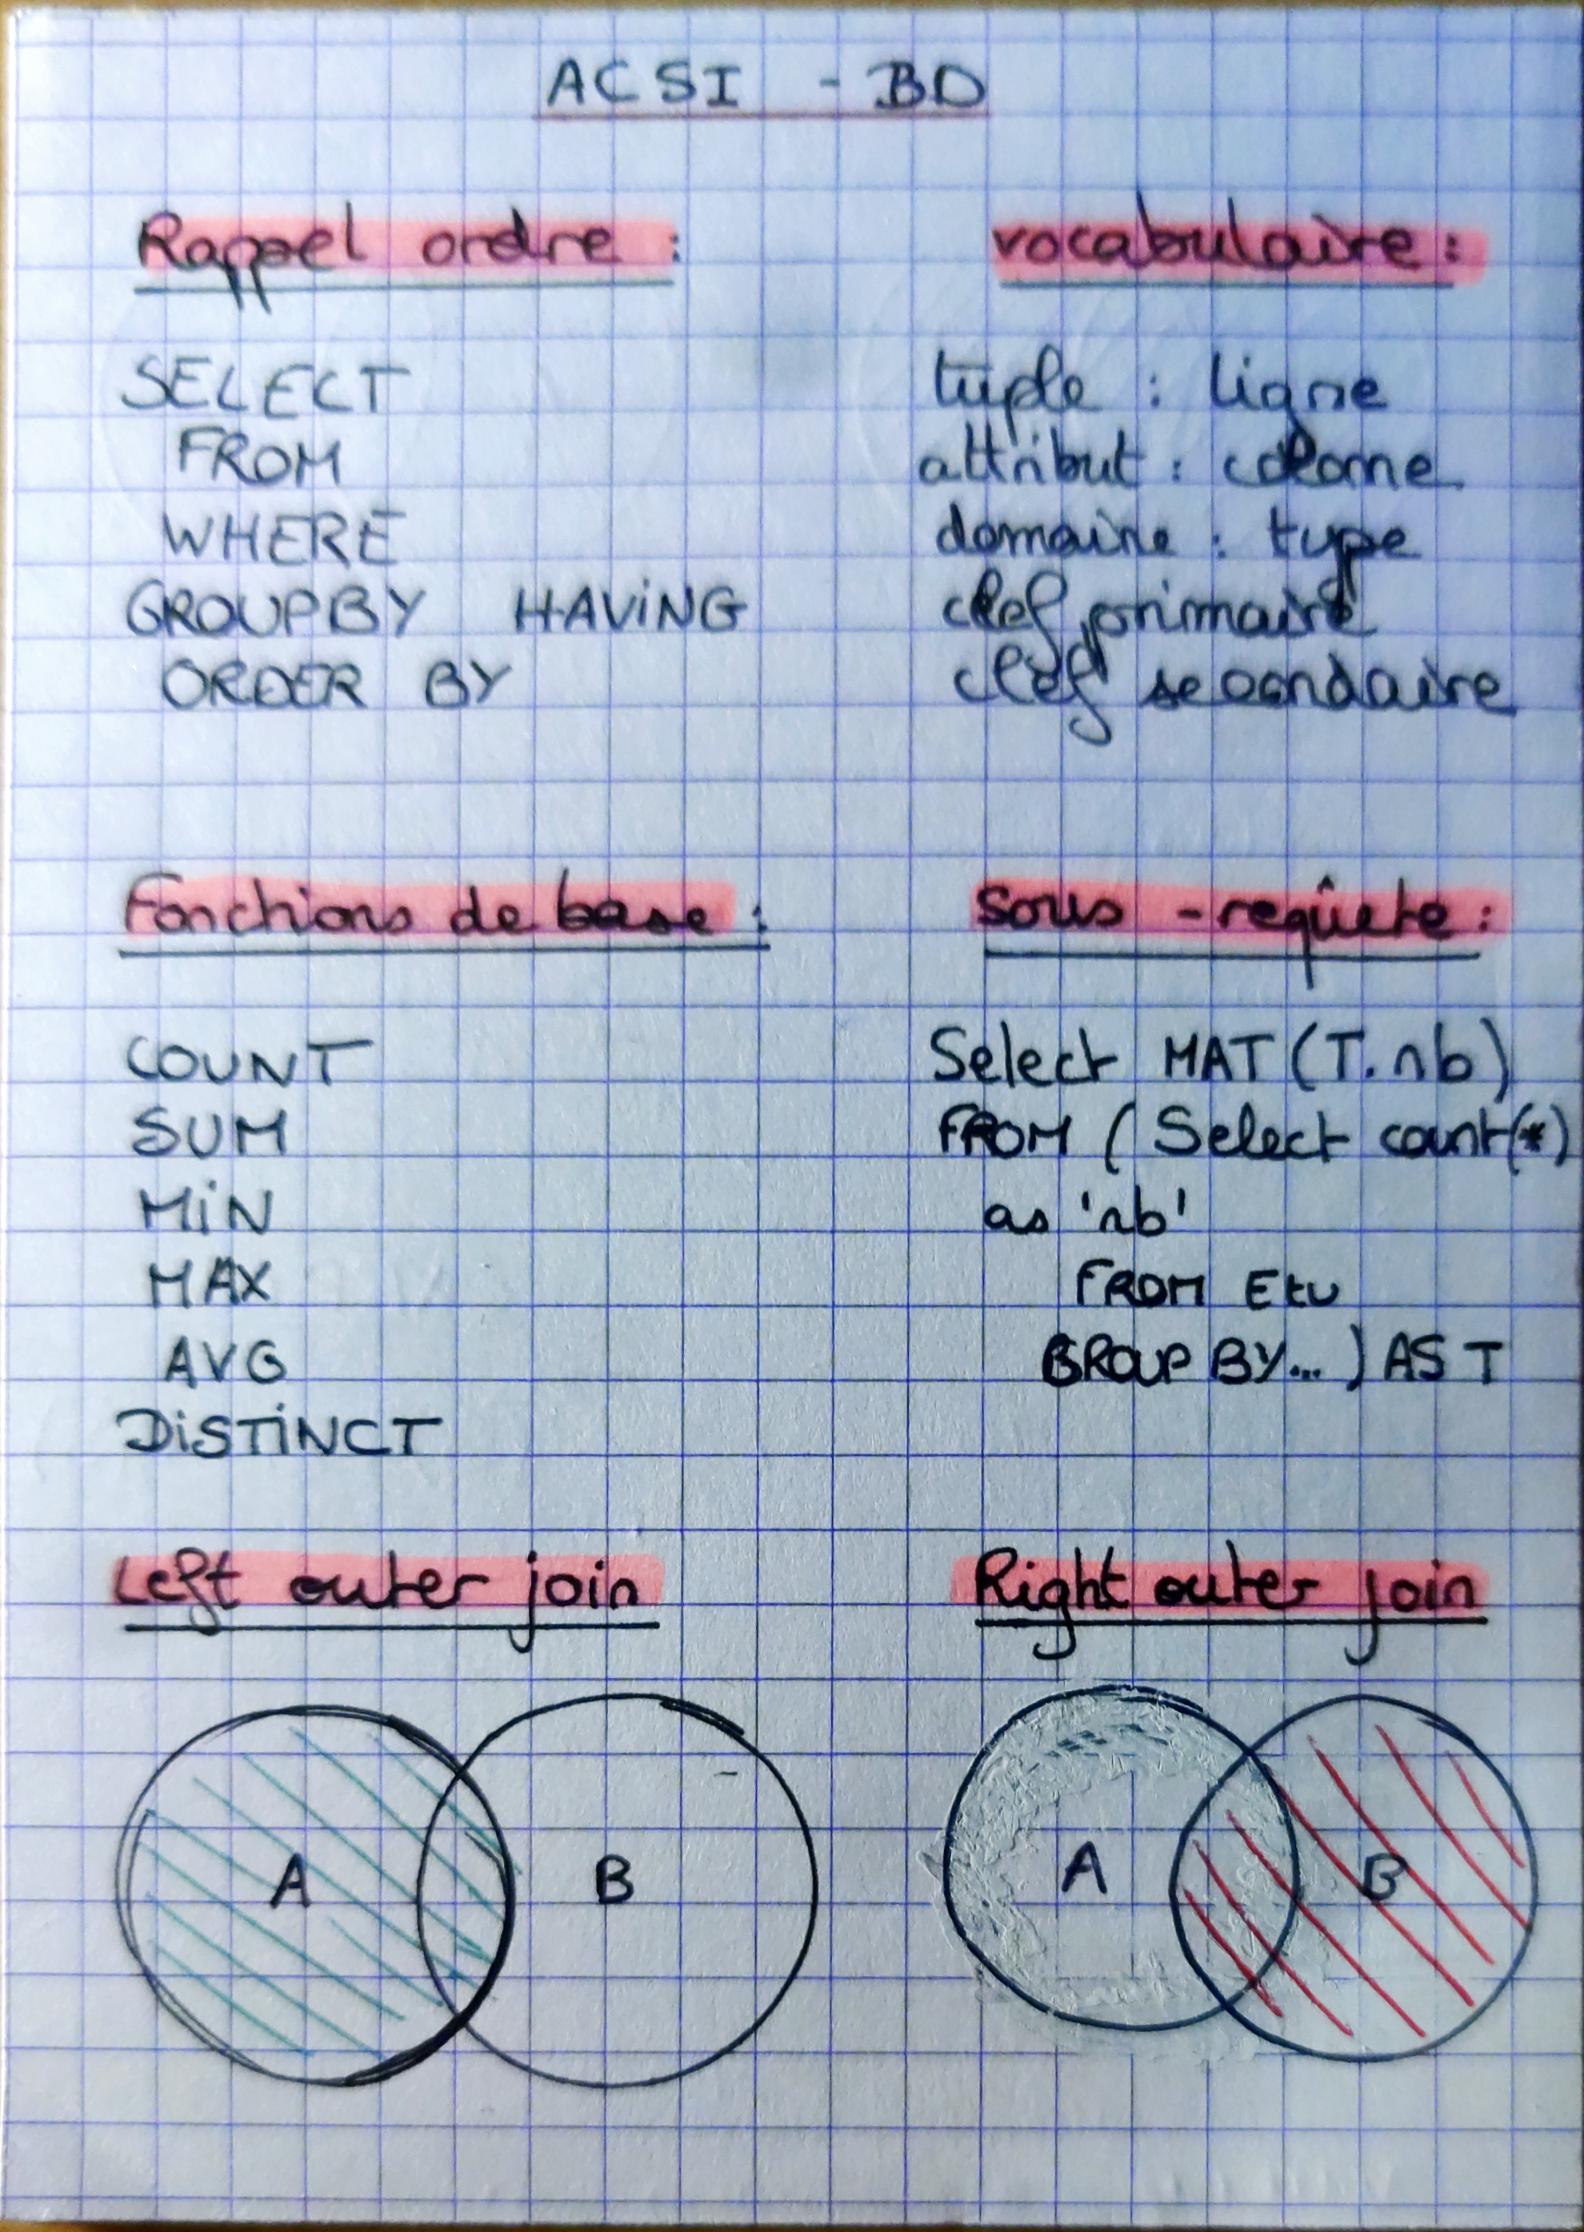 ACSI - BD
Rappel ordre :
SELECT
FROM
WHERE
GROUPBY HAVING
ORDER BY
vocabulaire :
tuple : ligne
attribut : colonne
domaine : type
clef primaire
clef secondaire
Fonctions de base :
COUNT
SUM
MIN
MAX
AVG
DISTINCT
Sous - reqûete :
Select MAT (T.nb)
FROM ( Select count(*)
as 'nb'
FROM Etu
GROUP BY... ) AS T
Left outer join
A B
Right outer join
A B